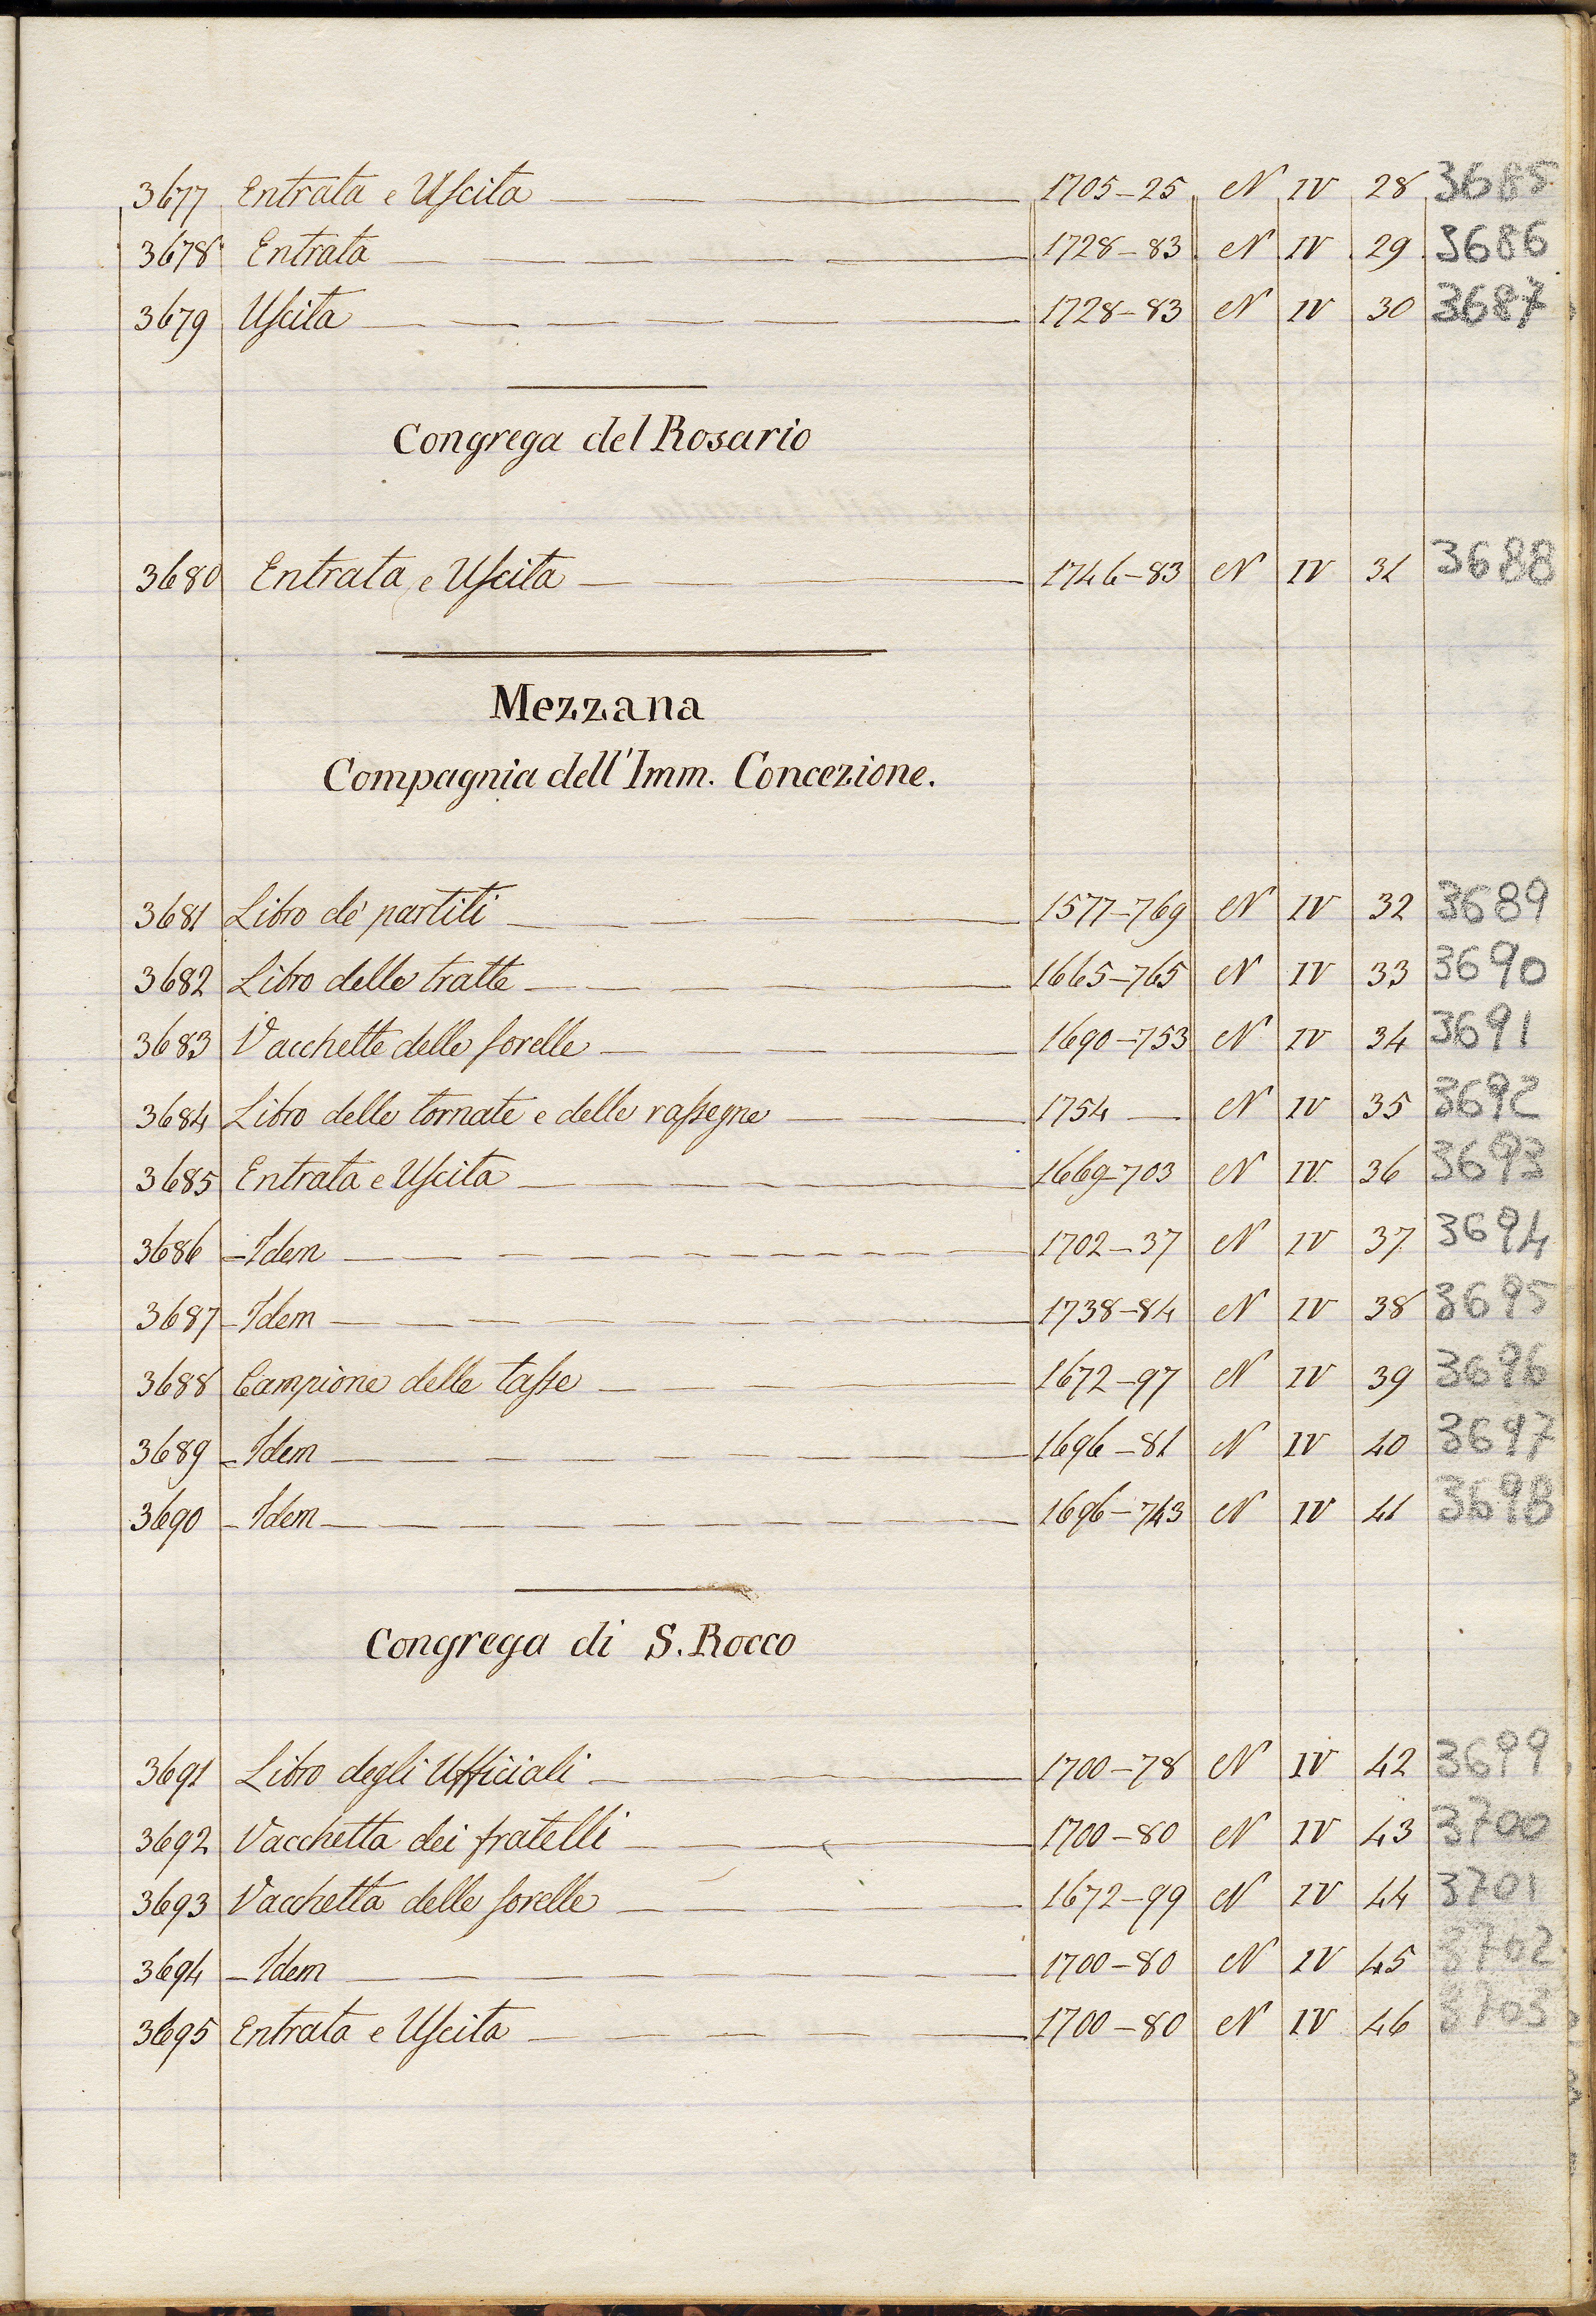 3677 Entrata e Uscita 1705-25 N IV 28 3685
3678 Entrata 1728-83 N IV 29 3686
3679 Uscita 1728-83 N IV 30 3687
Congrega del Rosario
3680 Entrata e Uscita 1746-83 N IV 31 3688
Mezzana
Compagnia dell'Imm. Concezione.
3681 Libro de' partiti 1577-769 N IV 32 3689
3682 Libro delle tratte 1665-765 N IV 33 3690
3683 Vacchette delle sorelle 1690-753 N IV 34 3691
3684 Libro delle tornate e delle rassegne 1754 — N IV 35 3692
3685 Entrata e Uscita 1669-703 N IV 36 3693
3686 - Idem 1702-37 N IV 37 3694
3687 - Idem 1738-84 N IV 38 3695
3688 Campione delle tasse 1672-97 N IV 39 3696
3689 - Idem 1696-81 N IV 40 3697
3690 - Idem 1696-743 N IV 41 3698
Congrega di S. Rocco
3691 Libro degli Ufficiali 1700-78 N IV 42 3699
3692 Vacchetta dei fratelli 1700-80 N IV 43 3700
3693 Vacchetta delle sorelle 1672-99 N IV 44 3701
3694 - Idem 1700-80 N IV 45 3702
3695 Entrata e Uscita 1700-80 N IV 46 3703